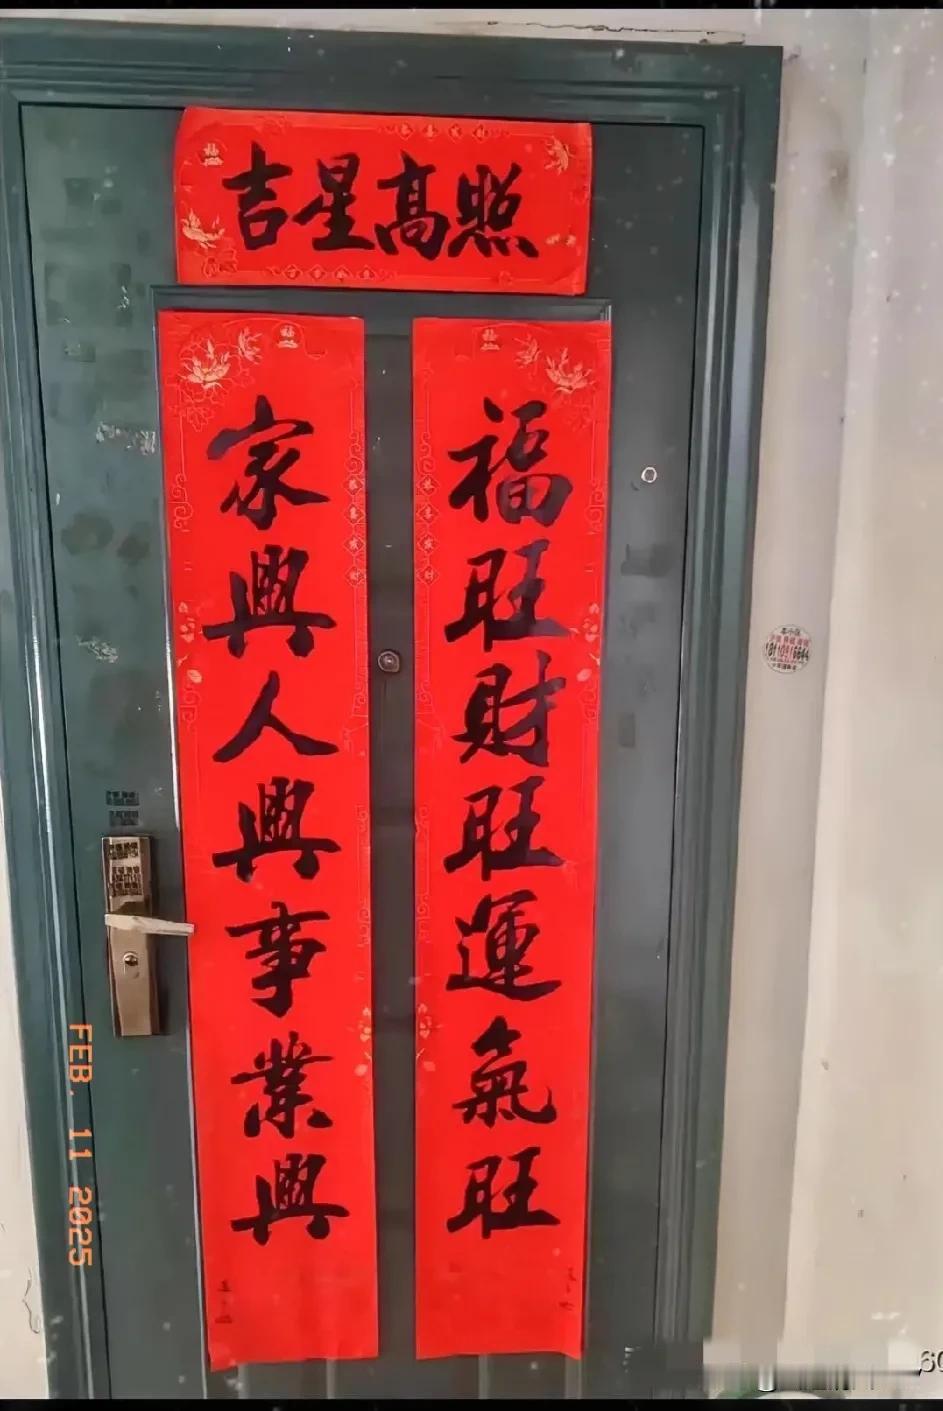 吉星高照
福旺財旺運氣旺
家興人興事業興
FEB. 11 2025